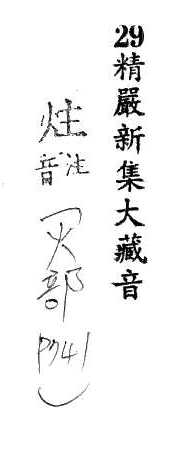 29精嚴新集大藏音
炷音注(火部P741)